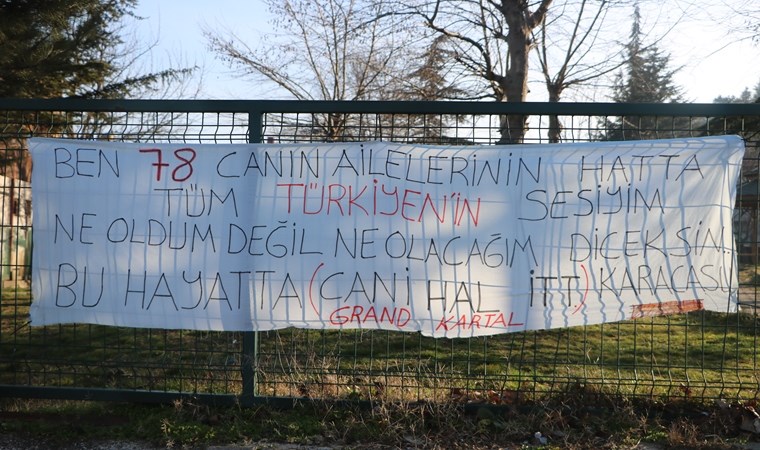 BEN 78 CANIN AİLELERİNİN HATTA
TÜM TÜRKİYEN'İN SESİYİM
NE OLDUM DEĞİL NE OLACAĞIM DİCEKSİN..
BU HAYATTA (CANİ HAL İTT) KARACASU
GRAND KARTAL